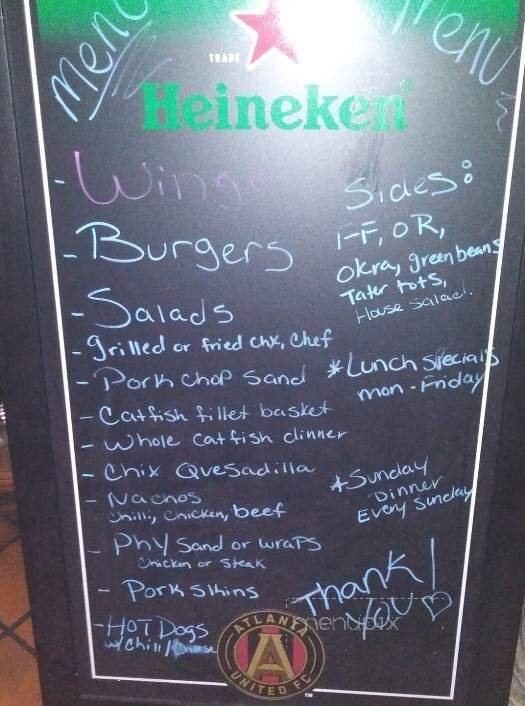 Menu
Menu
TRADE
Heineken
- Wings
- Burgers
- Salads
- grilled or fried chx, Chef
- Pork chop Sand
- Catfish fillet basket
- Whole Catfish dinner
- Chix Quesadilla
- Nachos
Chilli, Chicken, beef
- Phy Sand or wraps
Chicken or Steak
- Pork Skins
- HOT Dogs
w/ Chili / Cheese
Sides:
FF, OR,
Okra, green beans
Tater tots,
House Salad.
*Lunch Specials
mon - Friday
*Sunday
Dinner
Every Sunday
Thank
You!
menupix
ATLANTA
A
UNITED FC
TM